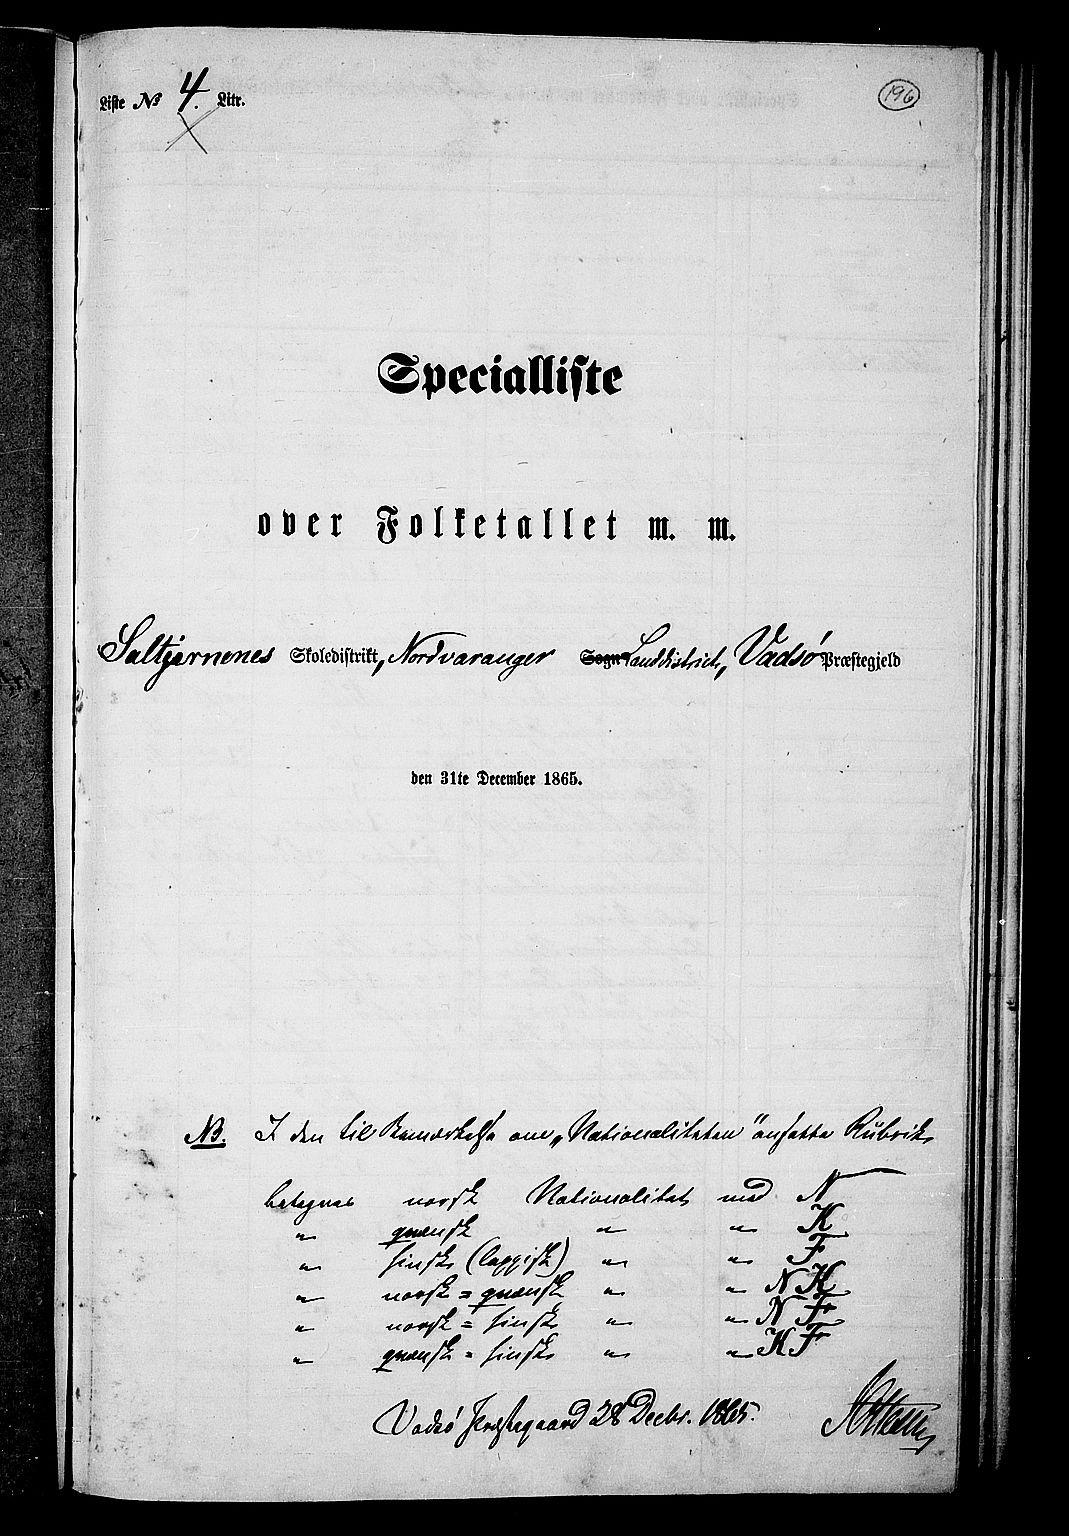 Liste № 4. Litr.
196
Specialliste
over Folketallet m. m.
Saltjernenes Skoledistrikt, Nordvaranger Sogn Landdistrict, Vadsø Præstegjeld
den 31te December 1865.
NB. I den til Bemærkelse om „Nationaliteten" ansatte Rubrik
betegnes norsk Nationalitet med N
" qvænsk " " K
" finsk (lappisk) " " F
" norsk = qvænsk " " N K
" norsk = finsk " " N F
" qvænsk = finsk " " K F
Vadsø Præstegaard 28 Decbr. 1865.